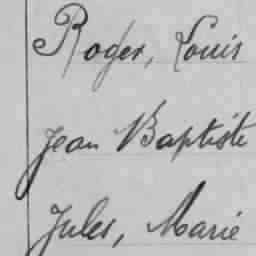 Roger, Louis
Jean Baptiste
Jules, Marie